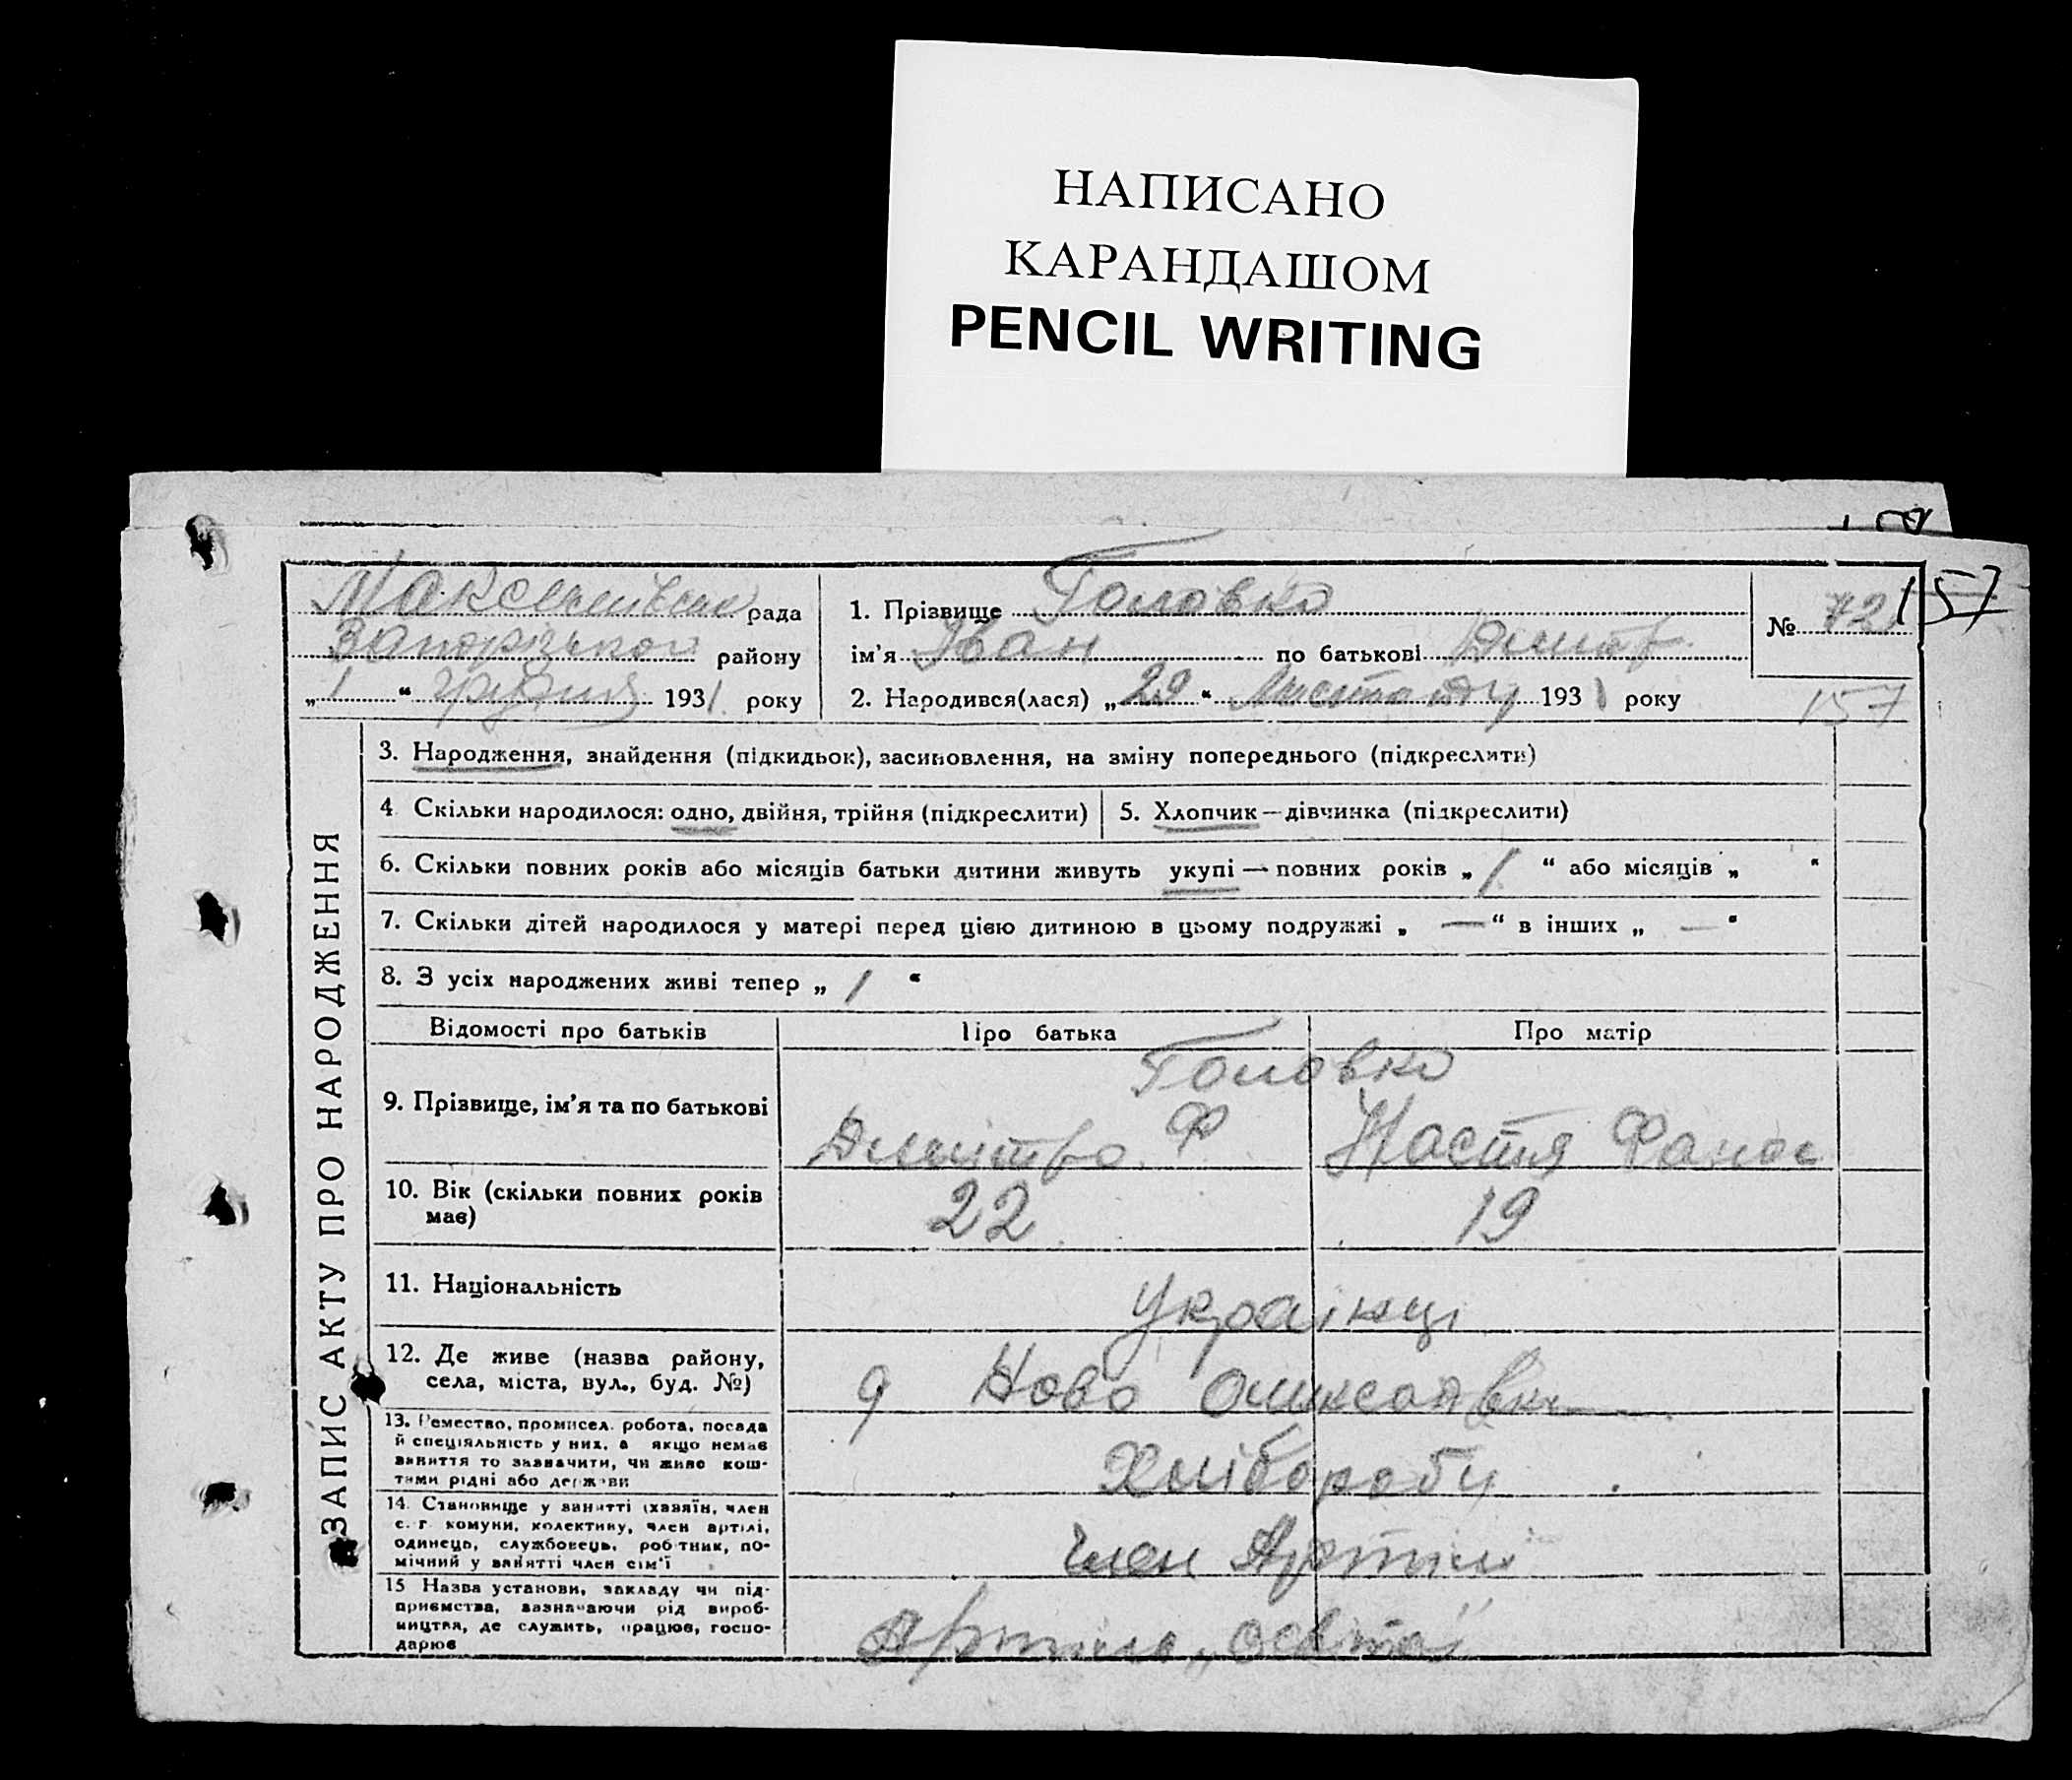 НАПИСАНО
КАРАНДАШОМ
PENCIL WRITING
рада
Запорізького району
„1“ грудня 1931 року
1. Прізвище Головко
ім'я Іван по батькові Дмит.
2. Народився(лася) „29“ Листопаду 1931 року
№ 72
157
157
ЗАПИС АКТУ ПРО НАРОДЖЕННЯ
3. Народження, знайдення (підкидьок), засиновлення, на зміну попереднього (підкреслити)
4 Скільки народилося: одно, двійня, трійня (підкреслити)
5. Хлопчик—дівчинка (підкреслити)
6. Скільки повних років або місяців батьки дитини живуть укупі — повних років „1“ або місяців „ “
7. Скільки дітей народилося у матері перед цією дитиною в цьому подружжі „ — “ в інших „ — “
8. З усіх народжених живі тепер „ 1 “
Відомості про батьків Про батька Про матір
9. Прізвище, ім'я та по батькові
Головко
Дмитро Ф Настя Фанас
10. Вік (скільки повних років має)
22 19
11. Національність
Українці
12. Де живе (назва району, села, міста, вул., буд. №)
Ново
13. Ремество, промисел. робота, посада й спеціяльність у них, а якщо немає заняття то зазначити, чи живе коштами рідні або держави
Хлібороби
14. Становище у занятті (хазяїн, член с.-г. комуни, колективу, член артілі, одинець, службовець, робітник, помічний у занятті член сім'ї
член Артіли
15 Назва установи, закладу чи підприємства, зазначаючи рід виробництва, де служить, працює, господарює
Артиль „Освіта“